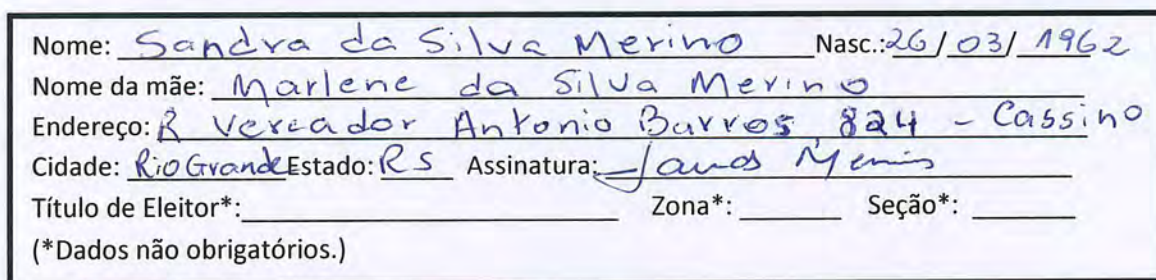 Nome: Sandra da Silva Merino Nasc.: 26/03/1962
Nome da mãe: Marlene da Silva Merino
Endereço: R Vereador Antonio Barros 824 - Cassino
Cidade: Rio Grande Estado: RS Assinatura:
Título de Eleitor*:____ Zona*:____ Seção*:____
(*Dados não obrigatórios.)